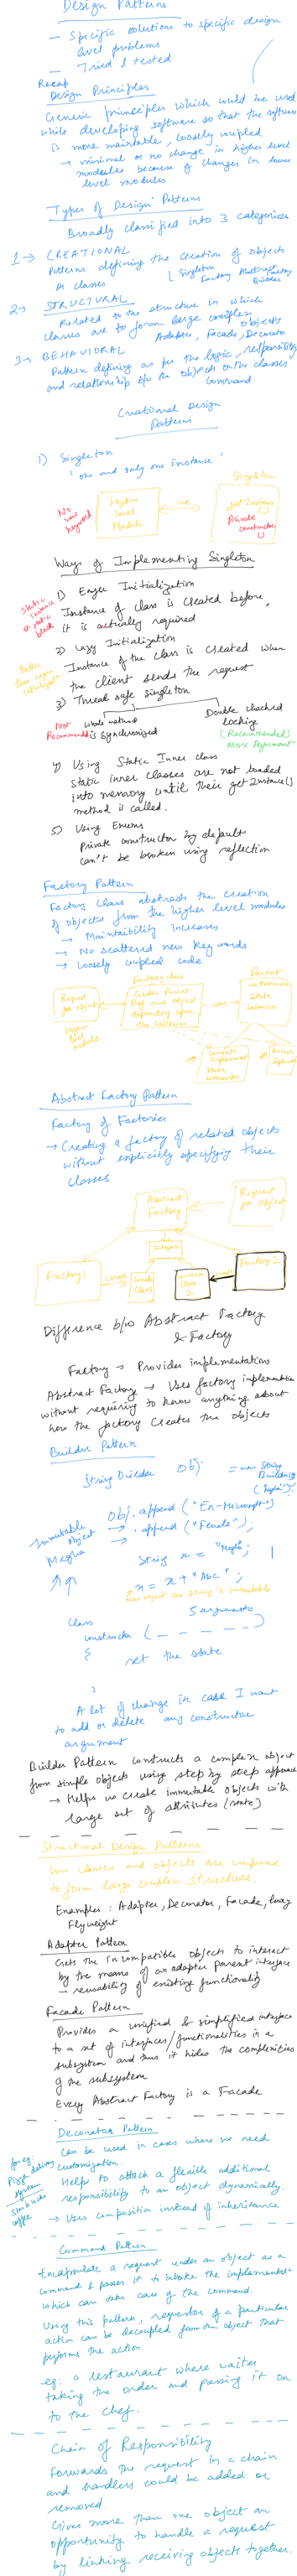 Design Patterns
- Specific solutions to specific design
level problems
- Tried & tested
Recap
Design Principles
Generic principles which could be used
while developing software so that the software
is more maintable, loosely coupled
→ minimal or no change in higher level
modules because of changes in lower
level modules
Types of Design Patterns
Broadly classified into 3 categories
1 → CREATIONAL
Patterns defining the creation of objects
or classes
Singleton
Factory Abstract Factory
Builder
2 → STRUCTURAL
Related to the structure in which
classes are to form large complex
objects
Adapter, Facade, Decorator
3 → BEHAVIORAL
Pattern defining as per the logic, responsibility
and relationship b/w the objects or the classes
Command
Creational Design
Patterns
1) Singleton
'one and only one instance'
Singleton
No
new
keyword
Higher
Level
Module
use
getInstance
()
Private
constructor
()
Ways of Implementing Singleton
1) Eager Initialization
Static
instance
or static
block
Instance of class is created before,
it is actually required
2) Lazy Initialization
Better
than eager
initialization
Instance of the class is created when
the client sends the request
3) Thread safe singleton
Not
Recommended
Whole method
is synchronized
Double checked
locking
(Recommended)
More Performant
4) Using Static Inner class
Static inner classes are not loaded
into memory until their getInstance()
method is called.
5) Using Enums
Private constructor by default
can't be broken using reflection
Factory Pattern
Factory Class abstracts the creation
of objects from the higher level modules
→ Maintaibility increases
→ No scattered new keywords
→ Loosely coupled code
Factory class
Parent
Request
for object
Create Parent
Ref and object
depending upon
the criteria
uses
state
behavior
Higher
level
module
Concrete
Implement
Abstract Factory Pattern
Factory of Factories
→ Creating a factory of related objects
without explicitly specifying their
classes
Abstract
Factory
Request
for Object
Factory 1
create
Class
2
Factory 2
Difference b/w Abstract Factory
& Factory
Factory → Provides implementations
Abstract Factory → Uses factory implementation
without requiring to know anything about
how the factory creates the objects
Builder Pattern
String Builder Obj = new String
Builder
Immutable
object
Megha
Obj.append ("Ex-Microsoft")
→ .append ("Female");
String x = "Megha";
x = x + "Abc";
New object as String is immutable
5 arguments
Class
constructor ( - - - - - )
{
set the state
}
A lot of change in case I want
to add or delete any constructor
argument
Builder Pattern constructs a complex object
from simple objects using step by step approach
→ Helps us create immutable objects with
large set of attributes (state)
Structural Design Patterns
how classes and objects are composed
to form large complex structure.
Examples: Adapter, Decorator, Facade, Proxy
Flyweight
Adapter Pattern
Gets the incompatible objects to interact
by the means of an adapter parent interface
→ reusability of existing functionality
Facade Pattern
Provides a unified & simplified interface
to a set of interfaces/functionalities in a
subsystem and thus it hides the complexities
of the subsystem
Every Abstract Factory is a Facade
Decorator Pattern
for eg:
Pizza delivery
system
Starbucks
coffee
Can be used in cases where we need
customization.
Help to attach a flexible additional
responsibility to an object dynamically.
→ Uses composition instead of inheritance
Command Pattern
Encapsulate a request under an object as a
command & passes it to invoke the implementation
which can take care of the command.
Using this pattern, requestor of a particular
action can be decoupled from the object that
performs the action.
eg: a restaurant where waiter
taking the order and passing it on
to the chef.
Chain of Responsibility
Forwards the request in a chain
and handlers could be added or
removed.
Gives more than one object an
opportunity to handle a request
by linking receiving objects together.